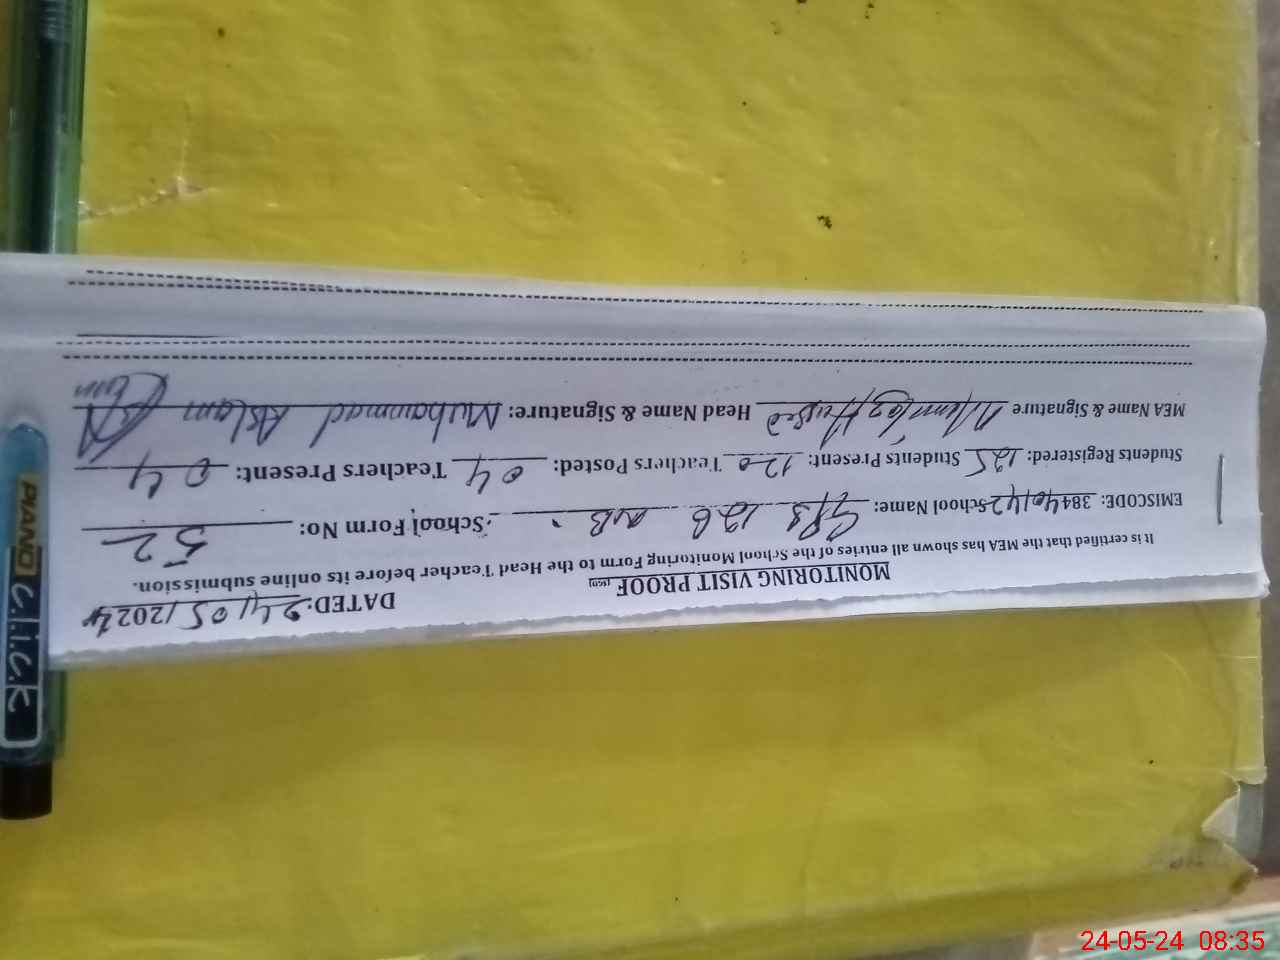 MONITORING VISIT PROOF
DATED: 24/05/2024
It is certified that the MEA has shown all entries of the School Monitoring Form to the Head Teacher before its online submission.
EMISCODE: 38440142 School Name: GPS 126 NB School Form No: 52
Students Registered: 125 Students Present: 120 Teachers Posted: 04 Teachers Present: 04
MEA Name & Signature Hussed Head Name & Signature: Muhammad Aslam
PIANO
C.l.i.C.K
24-05-24 08:35